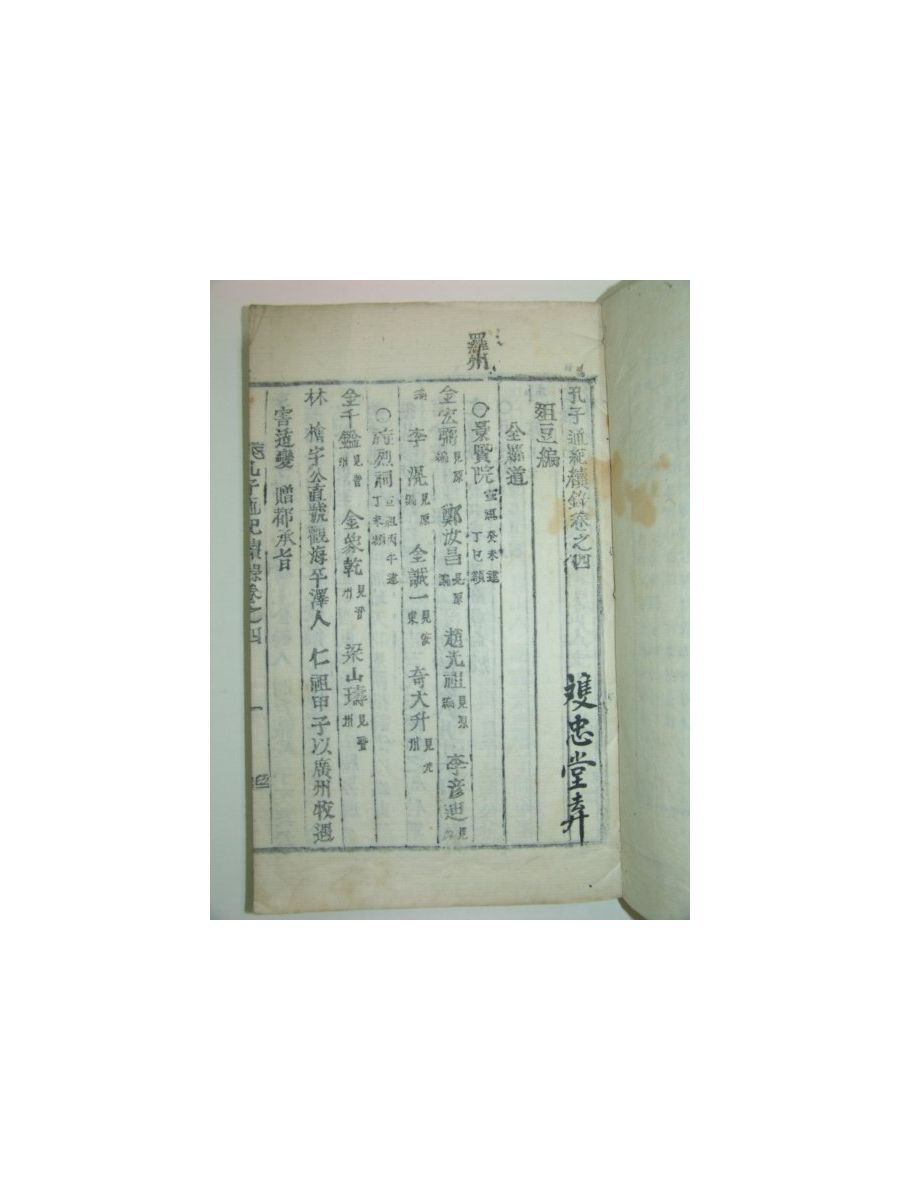 羅州
孔子通紀續錄卷之四
雙忠堂弆
俎豆編
全羅道
○景賢院 宣祖癸未建 丁巳額
金宏弼 見原編 鄭汝昌 見原編 趙光祖 見原編 李彦迪 見原
編 李滉 見原編 金誠一 見安東 奇大升 見光州
○旌烈祠 宣祖丙午建 丁未額
金千鎰 見晋州 金象乾 見晋州 梁山璹 見晋州
林檜字公直號觀海平澤人 仁祖甲子以廣州牧遇
害适變 贈都承旨
孔子通紀續錄卷之四 一